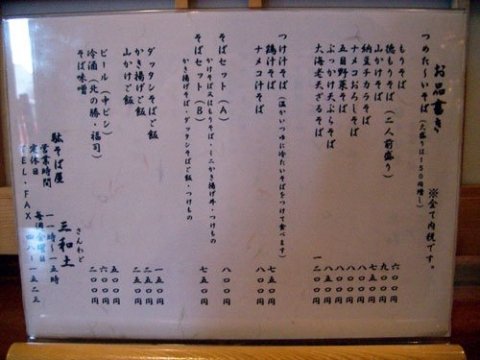 お品書き ※全て内税です。
つめた〜いそば(大盛りは150円増し)
もりそば 六〇〇円
徳もりそば(二人前盛り) 九〇〇円
山かけそば 七五〇円
納豆そば 八〇〇円
ナメコおろしそば 八〇〇円
五目野菜そば
ぶっかけ天ぷらそば
大海老天ざるそば
つけ汁そば(温かいつゆに冷たいそばをつけて食べます)
鶏汁そば 七五〇円
ナメコ汁そば 八〇〇円
そばセット(A) 八〇〇円
かけそば又はもりそば・ミニかき揚げ丼・つけもの
そばセット(B) 七五〇円
かき揚げそば・ダッタンそばご飯・つけもの
ダッタンそばご飯 一五〇円
かき揚げご飯 二五〇円
山かけご飯 二五〇円
ビール(中ビン) 五〇〇円
冷酒(北の勝・福司)
そば味噌 二〇〇円
駄そば屋 三和土 さんわど
営業時間 一一時〜一五時
定休日 毎週金曜日
TEL・FAX 四八-一五二五